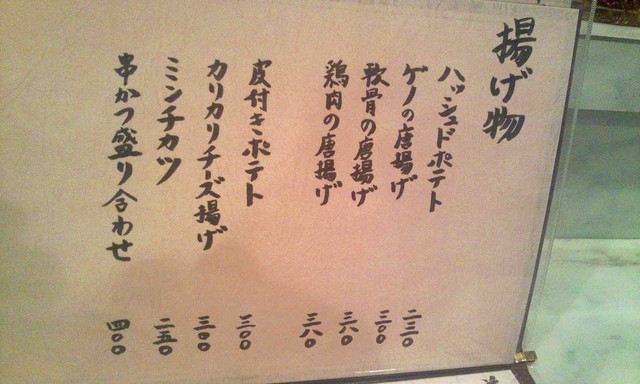 揚げ物
ハッシュドポテト 二三〇
ゲソの唐揚げ 三〇〇
軟骨の唐揚げ 三六〇
鶏肉の唐揚げ 三八〇
皮付きポテト 三〇〇
カリカリチーズ揚げ 三〇〇
ミンチカツ 二五〇
串かつ盛り合わせ 四〇〇